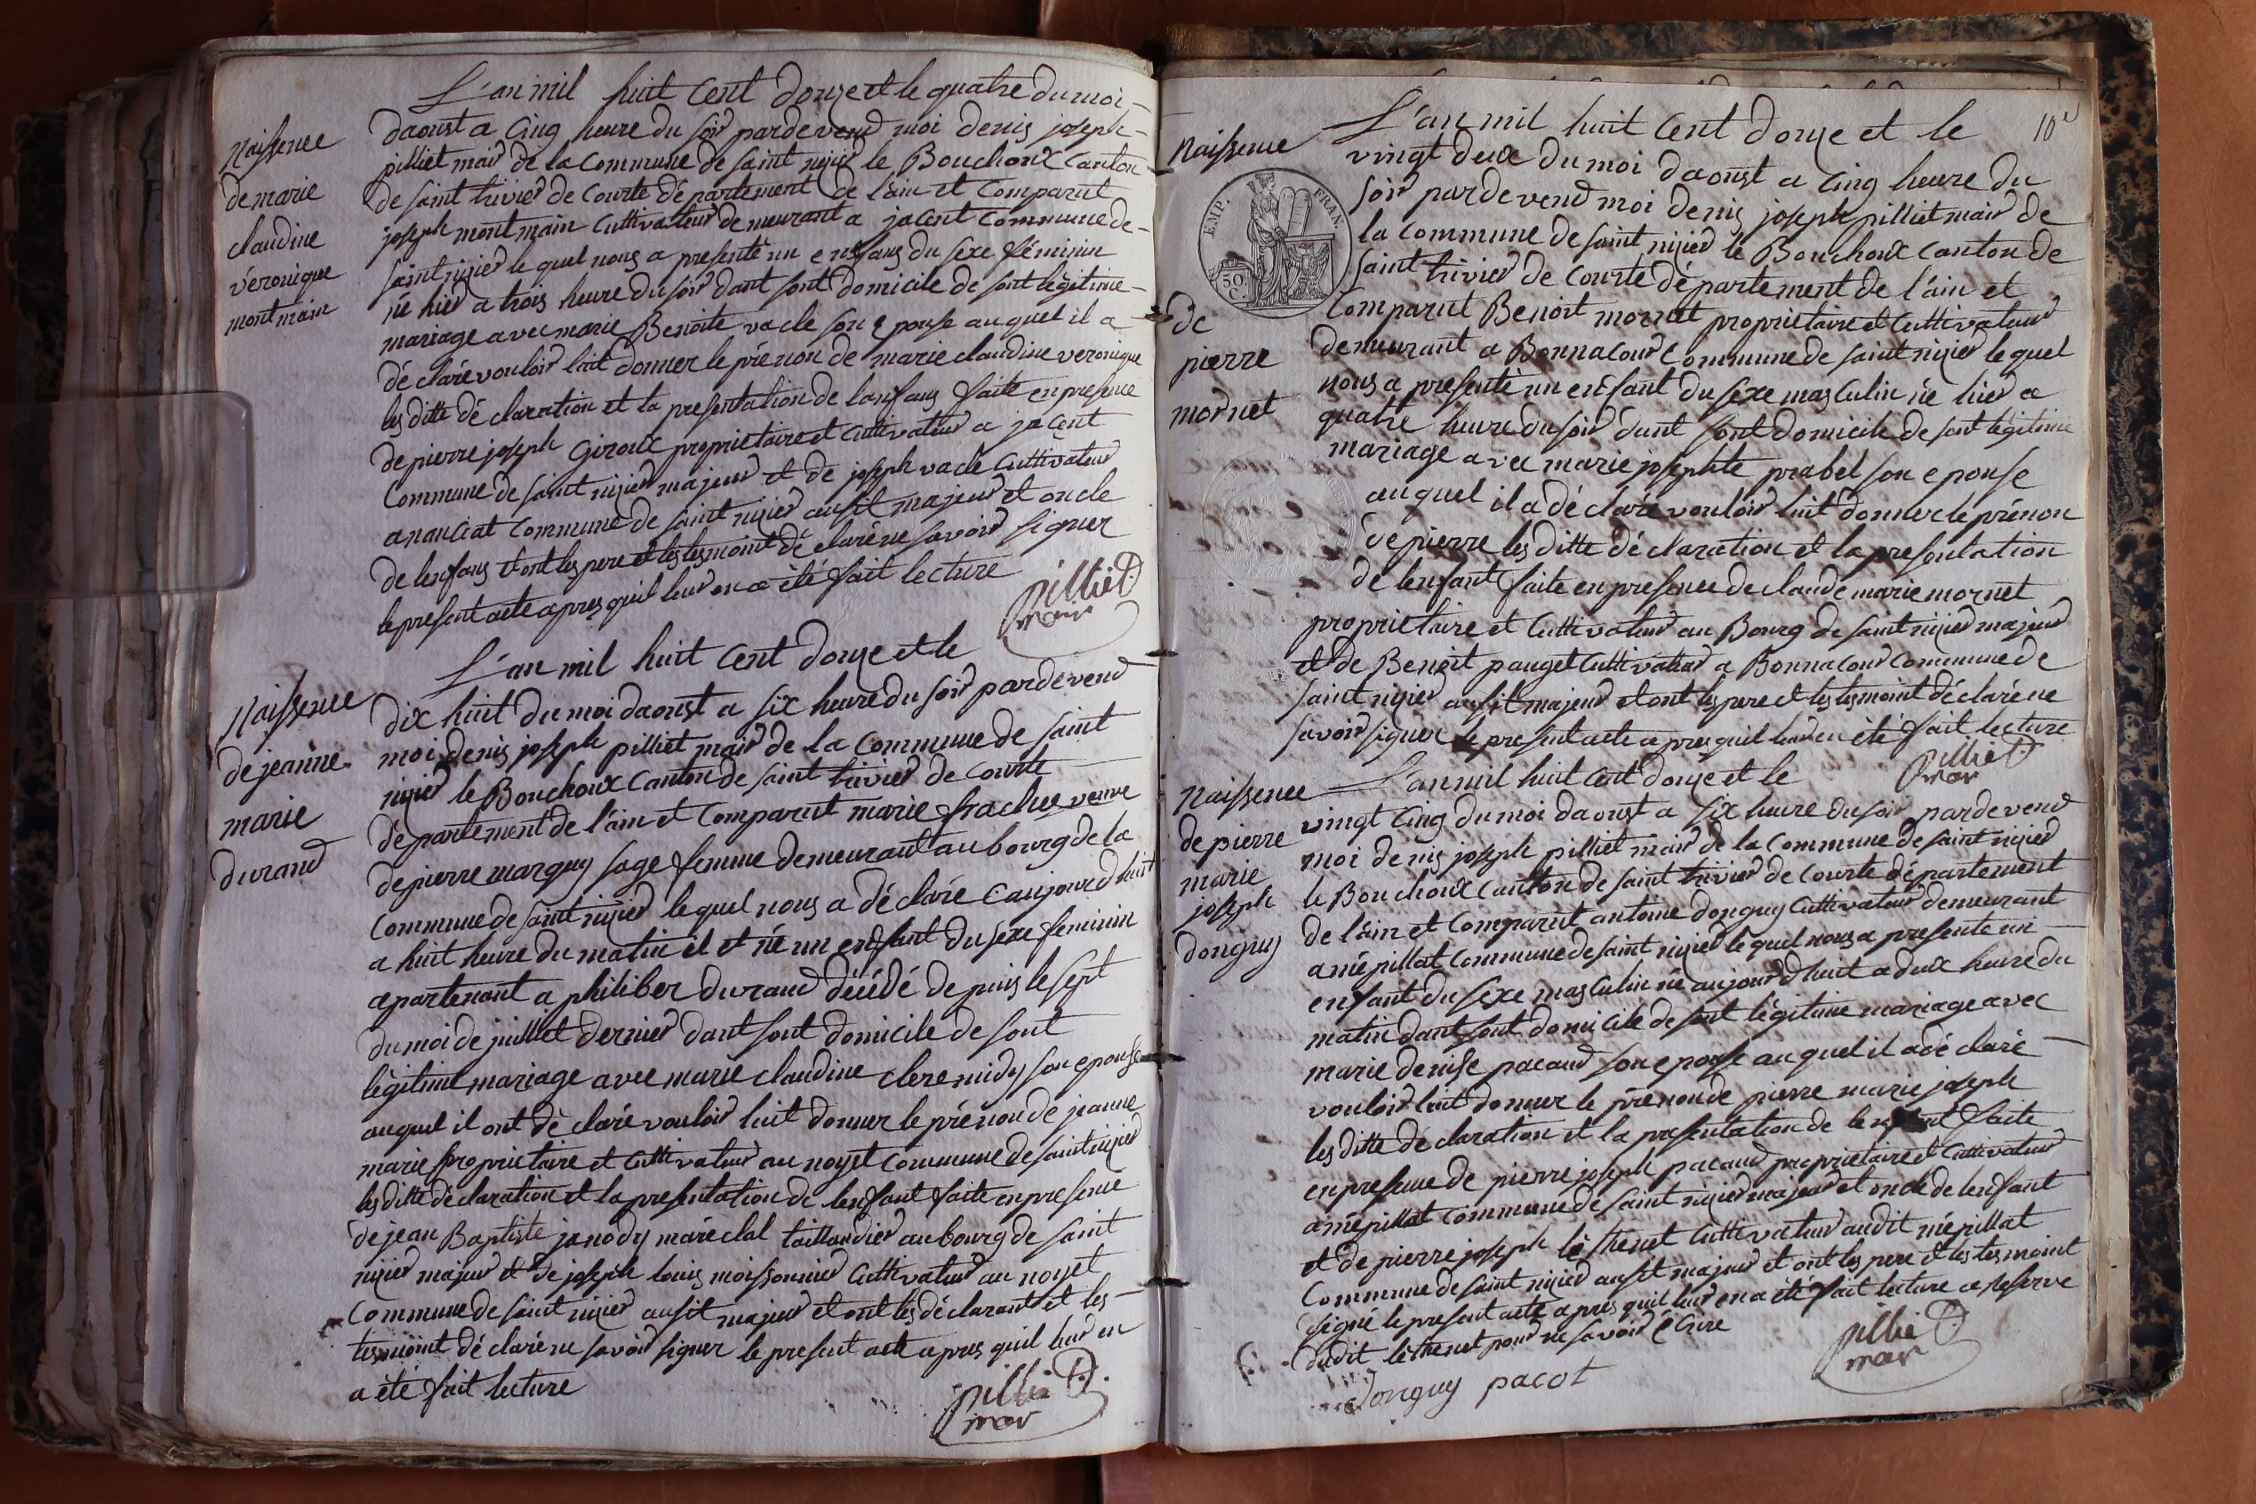 Naissence
de marie
claudine
véronique
montmain
L'an mil huit cent douze et le quatre du moi
daoust a cinq heure du soir pardevend moi denis joseph
pilliet mair de la commune de saint nizier le Bouchoux canton
de saint trivier de courte département de l'ain et comparut
joseph montmain cultivateur demeurant a jacent commune de
saint nizier le quel nous a presenté un enfans du sexe féminin
né hier a trois heure du soir dant sont domicile de sont légitime
mariage avec marie Benoite vacle son epouse auquel il a
déclaré vouloir luit donner le prénon de marie claudine veronique
les ditte déclaration et la presentation de lanfans faite en presence
de pierre joseph Giroux proprietaire et cultivateur a jacent
commune de saint nizier majeur et de joseph vacle cultivateur
a nanciat commune de saint nizier ausit majeur et oncle
de lenfans et ont les pere et les tesmoint déclaré ne savoir signer
le present acte apres quil leur en a été fait lecture
pilliet
mair
Naissence
de jeanne
marie
durand
L'an mil huit cent douze et le
dix huit du moi daoust a six heure du soir pardevend
moi denis joseph pilliet mair de la commune de saint
nizier le Bouchoux canton de saint trivier de courte
département de l'ain et comparut marie frachez veuve
de pierre marguy sage femme demeurant au bourg de la
commune de saint nizier le quel nous a déclaré caujourdhuit
a huit heure du matin il et né un enfant du sexe feminin
apartenant a philiber durand décédé depuis le sept
du moi de juillet dernier dant sont domicile de sont
légitime mariage avec marie claudine cleremidy son epouse
auquel il ont déclaré vouloir luit donner le prénon de jeanne
marie proprietaire et cultivateur au noyet commune de saint nizier
les ditte déclaration et la presentation de lenfant faite en presence
de jean Baptiste janody maréchal taillandier au bourg de saint
nizier majeur et de joseph louis moissonnier cultivateur au noyet
commune de saint nizier ausit majeur et ont les déclarant et les
tesmoint déclaré ne savoir signer le present acte apres quil leur en
a été fait lecture
pilliet
mair
10
Naissence
EMP. FRAN.
50
C.
de
pierre
mornet
L'an mil huit cent douze et le
vingt deux du moi daoust a cinq heure du
soir pardevend moi denis joseph pilliet mair de
la commune de saint nizier le Bouchoux canton de
saint trivier de courte département de l'ain et
comparut Benoit mornet proprietaire et cultivateur
demeurant a Bonnacour commune de saint nizier le quel
nous a presenté un enfant du sexe masculin né hier a
quatre heure du soir dant sont domicile de sont légitime
mariage avec marie josephte prabel son epouse
auquel il a déclaré vouloir luit donner le prénon
de pierre les ditte déclaration et la presentation
de lenfant faite en presence de claude marie mornet
proprietaire et cultivateur au Bourg de saint nizier majeur
et de Benoit pauget cultivateur a Bonnacour commune de
saint nizier ausit majeur et ont les pere et les tesmoint déclaré ne
savoir signer le present acte apres quil leur en été fait lecture
pilliet
mair
Naissence
de pierre
marie
joseph
donguy
L'an mil huit cent douze et le
vingt cinq du moi daoust a six heure du soir pardevend
moi denis joseph pilliet mair de la commune de saint nizier
le Bouchoux canton de saint trivier de courte département
de l'ain et comparut antoine donguy cultivateur demeurant
a mépillat commune de saint nizier le quel nous a presenté un
enfant du sexe masculin né aujourdhuit a deux heure du
matin dant sont domicile de sont légitime mariage avec
marie denise pacaud son epouse auquel il a déclaré
vouloir luit donner le prénon de pierre marie joseph
les ditte déclaration et la presentation de lenfant faite
en presence de pierre joseph pacaud proprietaire et cultivateur
a mépillat commune de saint nizier majeur et oncle de lenfant
et de pierre joseph léthenet cultivateur audit mépillat
commune de saint nizier ausit majeur et ont les pere et les tesmoint
signé le present acte apres quil leur en a été fait lecture a reserve
dudit léthenet pour ne savoir écrire
pilliet
mair
Donguy pacot